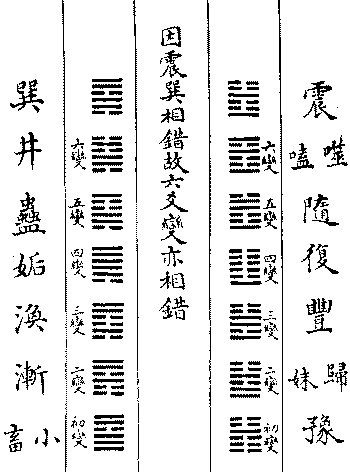 震 噬嗑 隨 復 豐 歸妹 豫
六變 五變 四變 三變 二變 初變
因震巽相錯故六爻變亦相錯
六變 五變 四變 三變 二變 初變
巽 井 蠱 姤 渙 漸 小畜